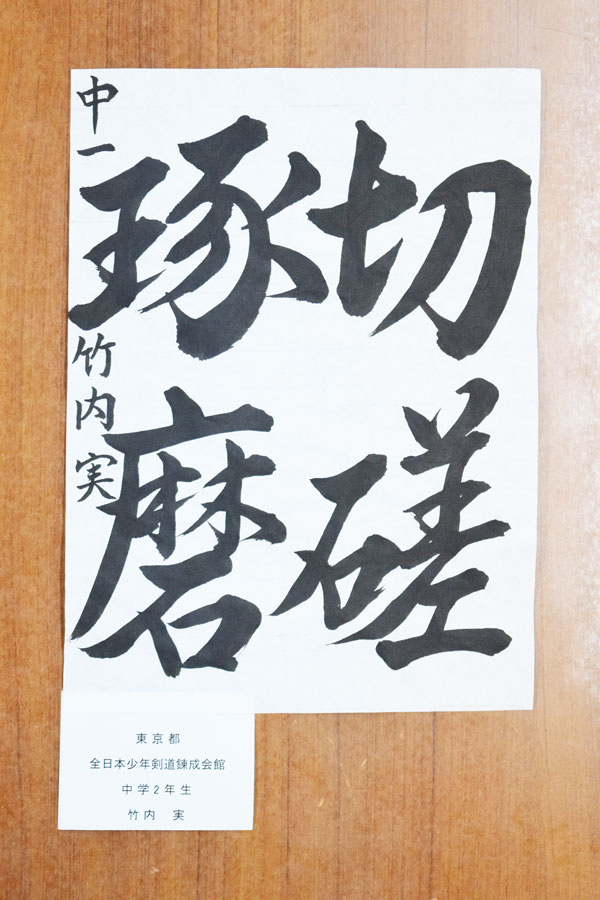 切磋
琢磨
中一 竹内実
東京都
全日本少年剣道錬成会館
中学2年生
竹内 実